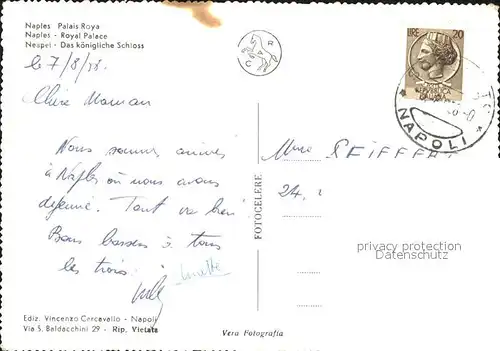 Naples Palais Roya
Naples - Royal Palace
Neapel - Das königliche Schloss
le 7/8/58.
Chère Maman
Nous sommes arrivés
à Naples où nous avons
dejeuné. Tout va bien
Bons baisers à tous
les trois.
LIRE 20
REPVBBLICA
ITALIANA
NAPOLI
C A R
Mme SEIFFERT
24,
FOTOCELERE
privacy protection
watermark
Ediz. Vincenzo Carcavallo - Napoli
Via S. Baldacchini 29 - Rip. Vietata
Vera Fotografia